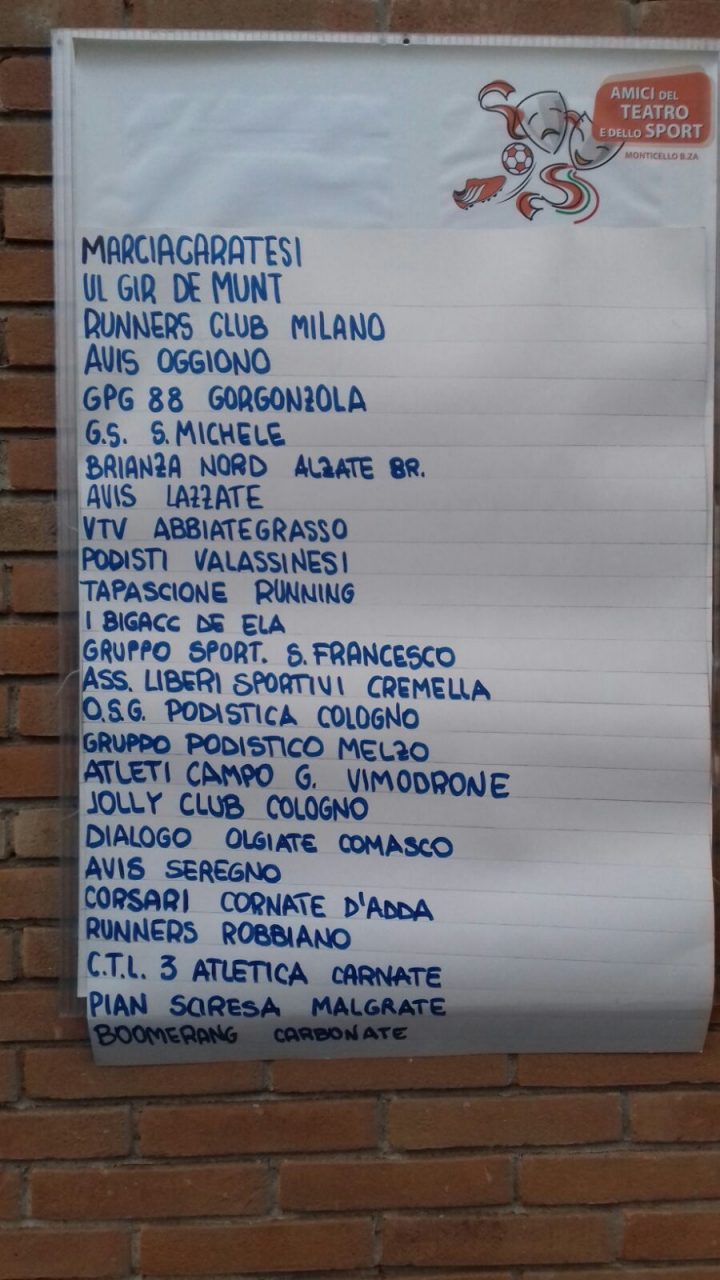 AMICI DEL
TEATRO
E DELLO SPORT
MONTICELLO B.ZA
MARCIACARATESI
UL GIR DE MUNT
RUNNERS CLUB MILANO
AVIS OGGIONO
GPG 88 GORGONZOLA
G.S. S. MICHELE
BRIANZA NORD ALZATE BR.
AVIS LAZZATE
VTV ABBIATEGRASSO
PODISTI VALASSINESI
TAPASCIONE RUNNING
I BIGACC DE ELA
GRUPPO SPORT. S. FRANCESCO
ASS. LIBERI SPORTIVI CREMELLA
O.S.G. PODISTICA COLOGNO
GRUPPO PODISTICO MELZO
ATLETI CAMPO G. VIMODRONE
JOLLY CLUB COLOGNO
DIALOGO OLGIATE COMASCO
AVIS SEREGNO
CORSARI CORNATE D'ADDA
RUNNERS ROBBIANO
C.T.L. 3 ATLETICA CARNATE
PIAN SCIRESA MALGRATE
BOOMERANG CARBONATE